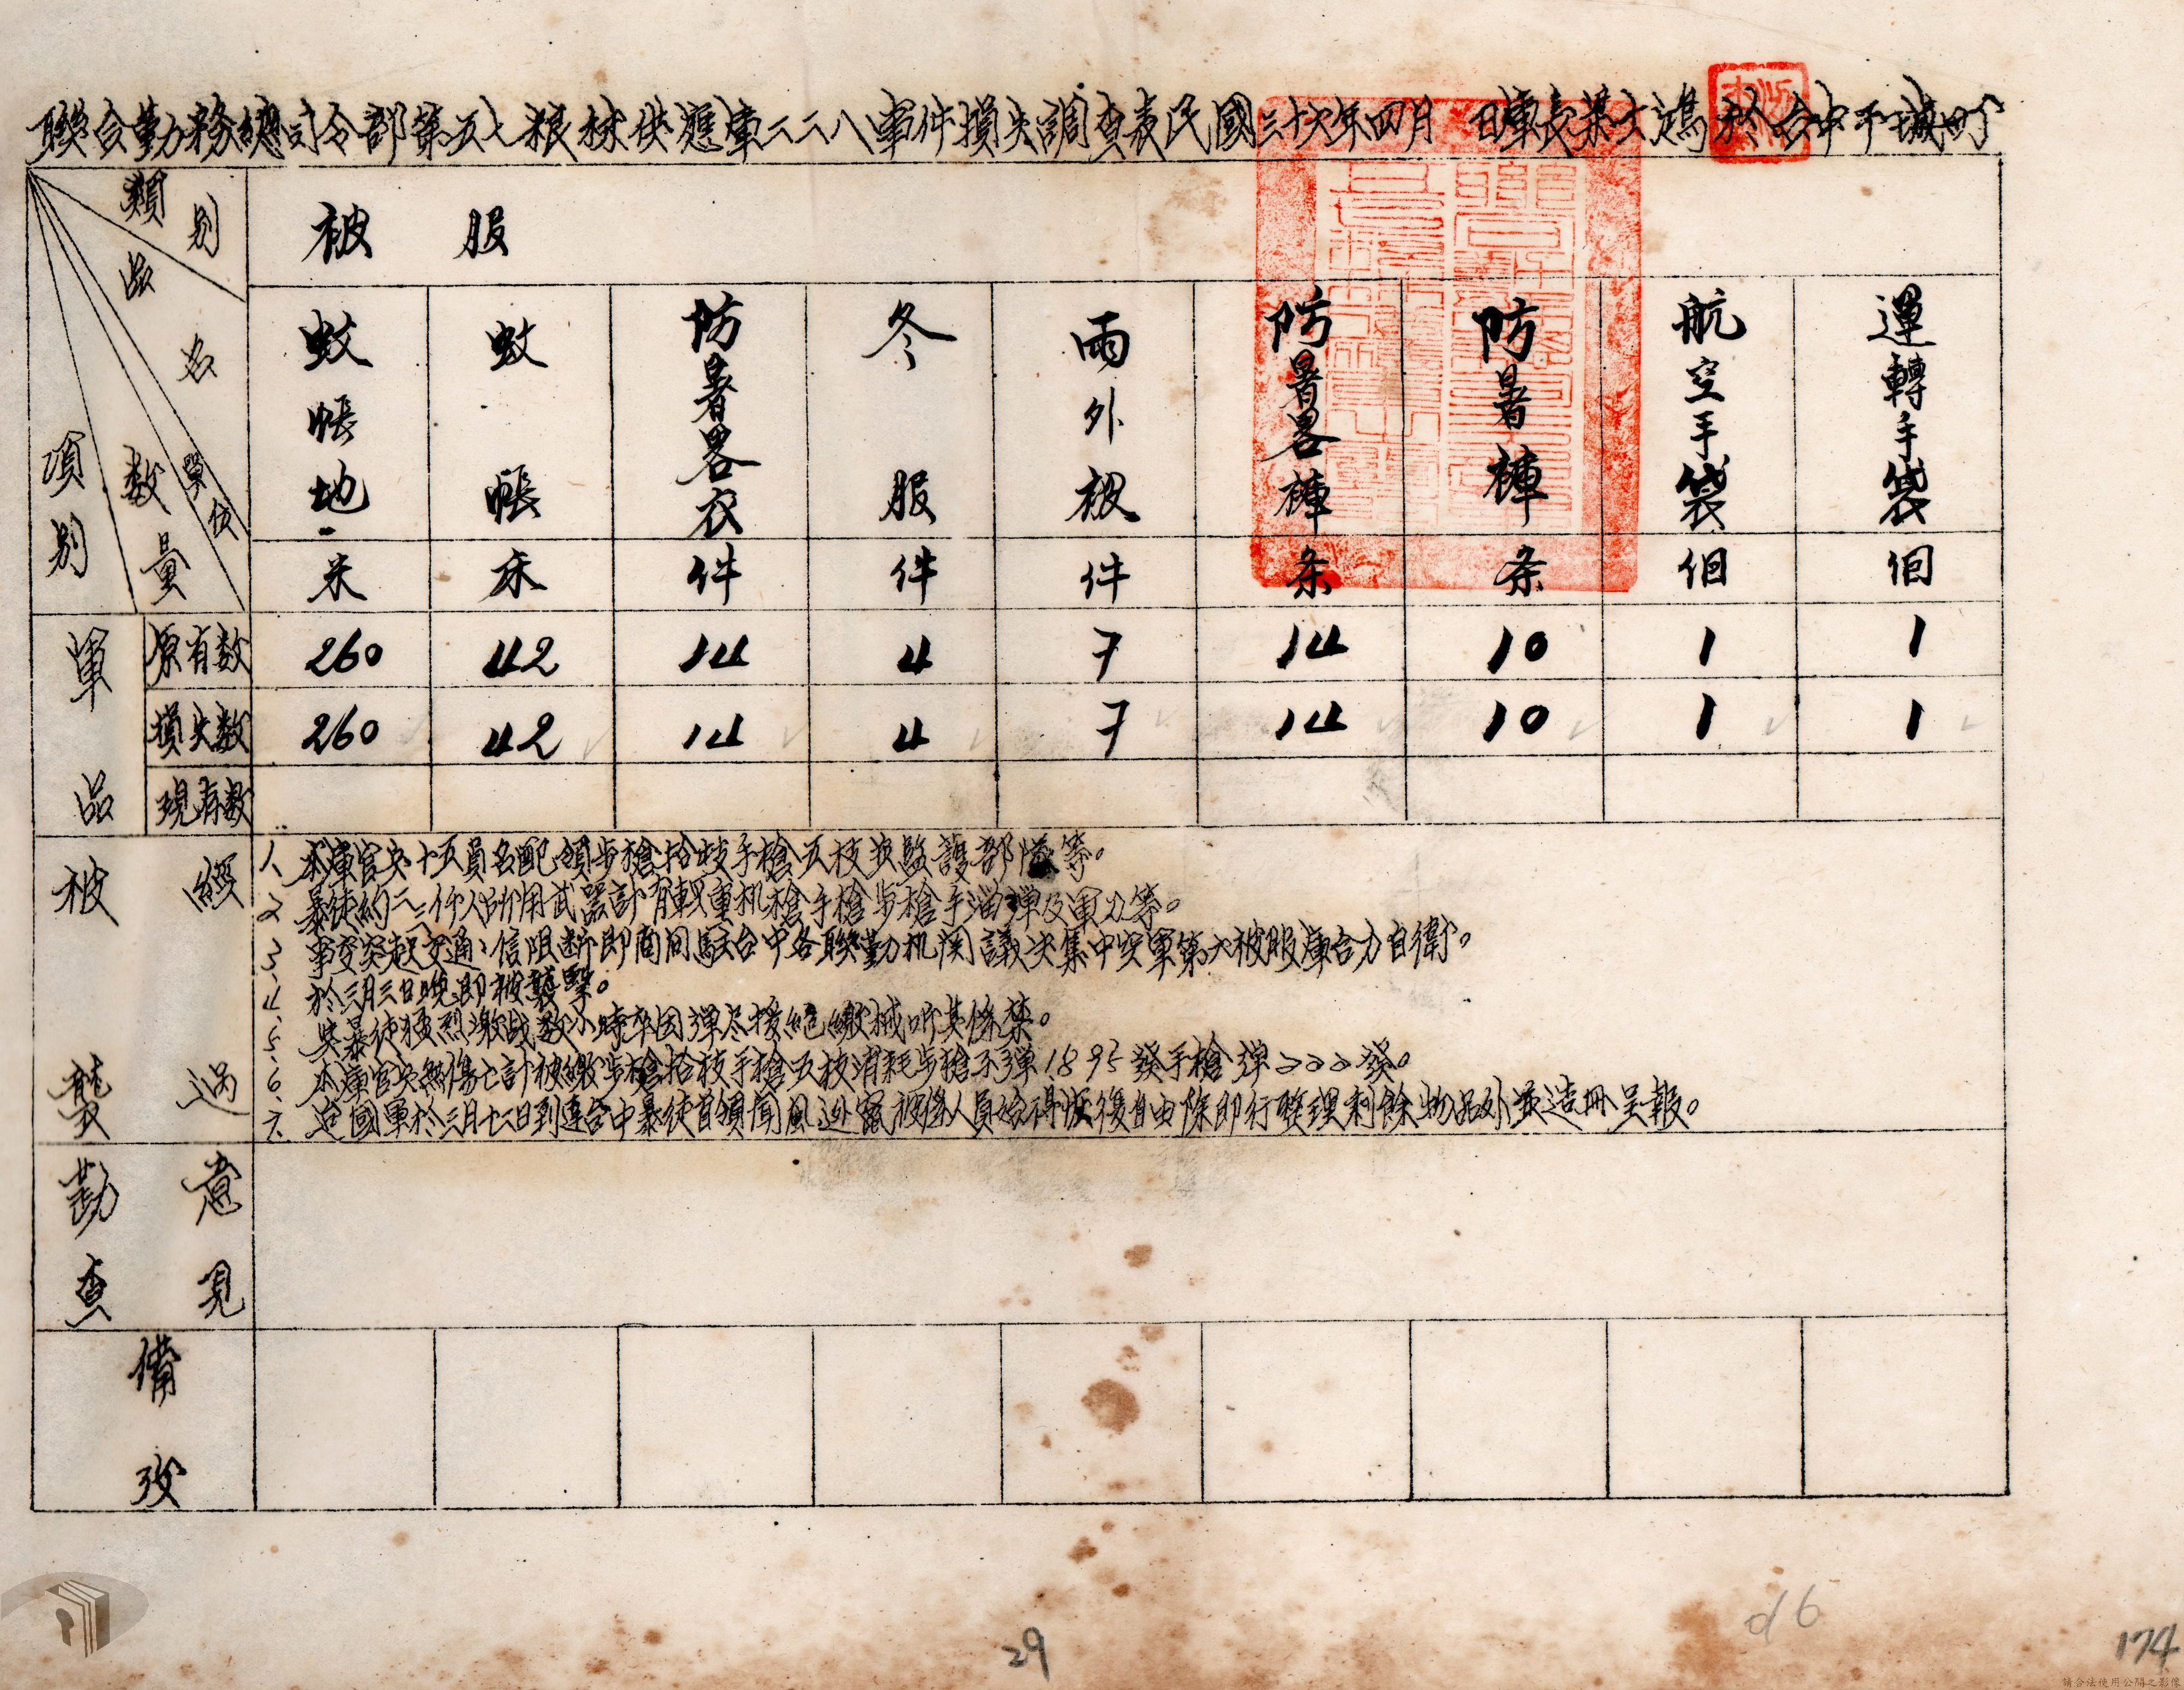 聯合勤務總司令部第五七粮秣供應庫二二八事件損失調查表民國三十六年四月 日庫長葉士鴻於台中干城町
類別
品名
單位
數量
項別
被服
蚊帳地
蚊帳
防暑畧衣
冬服
雨外被
防暑畧褲
防暑褲
航空手袋
運轉手袋
米 床 件 件 件 条 条 個 個
軍品
原有数 260 42 14 4 7 14 10 1 1
損失数 260 42 14 4 7 14 10 1 1
現存数
被襲經過
1、本庫官兵十五員名配領步槍拾枝手槍五枝並監護部隊等。
2、暴徒約二三仟人所用武器計有輕重机槍手槍步槍手溜彈及軍刀等。
3、事变突起交通通信阻断即商同駐台中各聯勤机関議决集中空軍第六被服庫合力自衛。
4、於三月三日晚即被襲擊。
5、與暴徒猛烈激战数小時卒因彈尽援絕繳械听其俘禁。
6、本庫官兵無傷亡計被繳步槍拾枝手槍五枝消耗步槍子彈1895發手槍彈222發。
7、迨國軍於三月十三日到達台中暴徒首領聞風逃竄被俘人員始得恢復自由除即行整理剩餘物品外並造冊呈報。
勘查意見
備攷
29
d6
174
請合法使用公開之影像